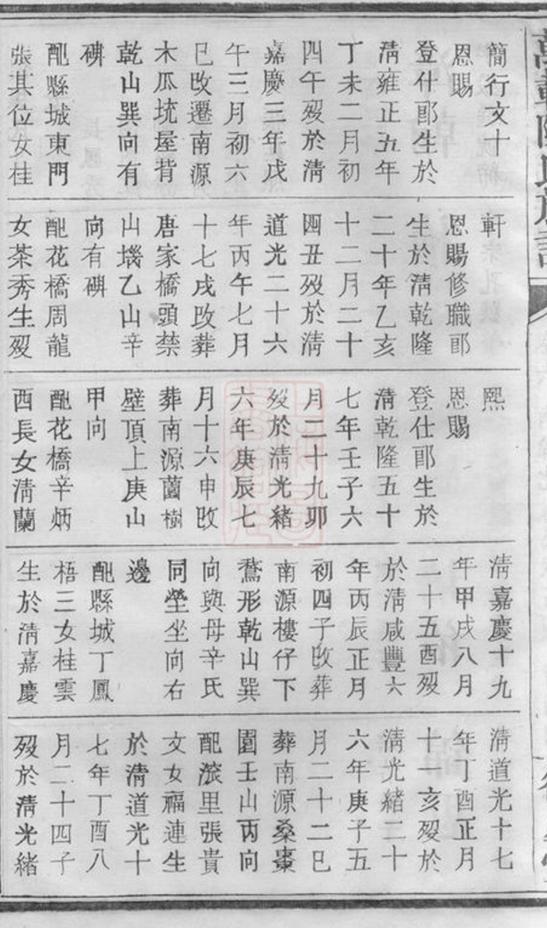 簡行文十
恩賜
登仕郎生於
清雍正五年
丁未二月初
四午歿於清
嘉慶三年戌
午三月初六
巳改遷南源
木瓜坑屋背
乾山巽向有
碑
配縣城東門
張其位女桂
軒
恩賜修職郎
生於淸乾隆
二十年乙亥
十二月二十
四丑歿於清
道光二十六
年丙午七月
十七戌改葬
唐家橋頭禁
山墈乙山辛
向有碑
配花橋周龍
女茶秀生歿
熙
恩賜
登仕郎生於
清乾隆五十
七年壬子六
月二十九卯
歿於清光緒
六年庚辰七
月十六申改
葬南源薗樹
壁頂上庚山
甲向
配花橋辛炳
西長女淸蘭
淸嘉慶十九
年甲戌八月
二十五酉歿
於清咸豐六
年丙辰正月
初四子改葬
南源樓仔下
鵞形乾山巽
向與母辛氏
同塋坐向右
邊
配縣城丁鳳
梧三女桂雲
生於清嘉慶
淸道光十七
年丁酉正月
十亥歿於
淸光緒二十
六年庚子五
月二十二巳
葬南源桑棗
園壬山丙向
配滚里張貴
文女福連生
於清道光十
七年丁酉八
月二十四子
歿於淸光緒